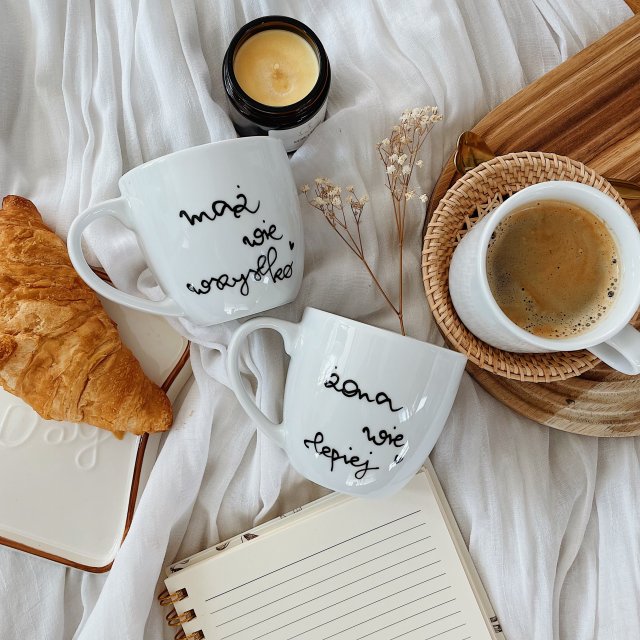 mąż
wie
wszystko
żona
wie
lepiej